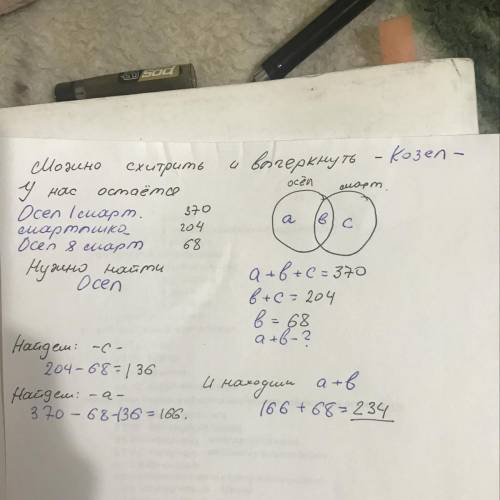 Можно схитрить и вычеркнуть -Козел-
У нас остаётся
Осел | смарт. 370
смартпшка 204
Осел & смарт 68
Нужно найти
Осел
осёл смарт.
а в с
a+b+c=370
b+c=204
b=68
a+b-?
Найдем: -с-
204-68=136
Найдем: -a-
370-68-136=166.
И находим a+b
166+68=234